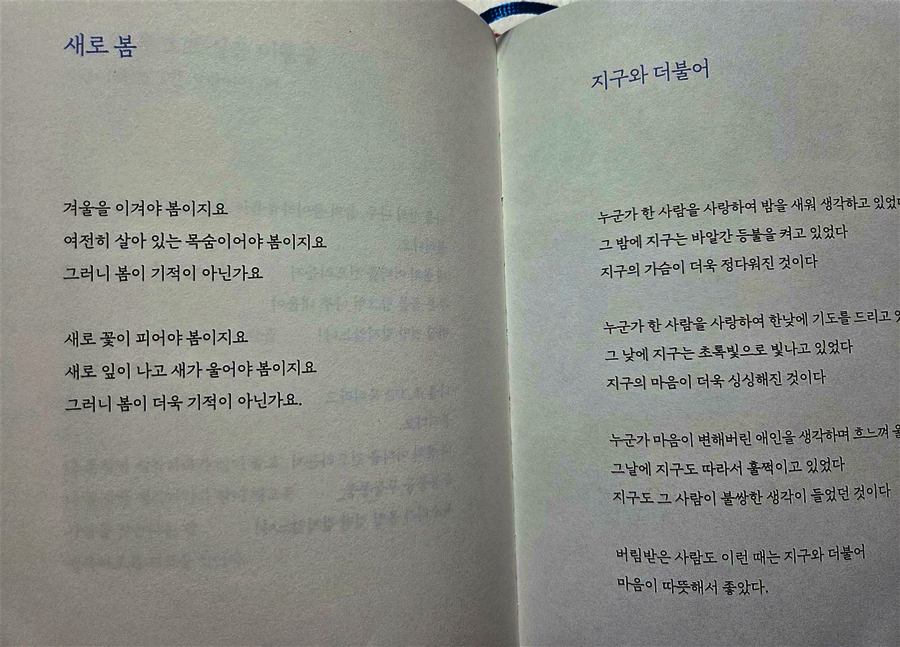 새로 봄
겨울을 이겨야 봄이지요
여전히 살아 있는 목숨이어야 봄이지요
그러니 봄이 기적이 아닌가요
새로 꽃이 피어야 봄이지요
새로 잎이 나고 새가 울어야 봄이지요
그러니 봄이 더욱 기적이 아닌가요.
지구와 더불어
누군가 한 사람을 사랑하여 밤을 새워 생각하고
그 밤에 지구는 바알간 등불을 켜고 있었다
지구의 가슴이 더욱 정다워진 것이다
누군가 한 사람을 사랑하여 한낮에 기도를 드리고
그 낮에 지구는 초록빛으로 빛나고 있었다
지구의 마음이 더욱 싱싱해진 것이다
누군가 마음이 변해버린 애인을 생각하며 흐느껴
그날에 지구도 따라서 훌쩍이고 있었다
지구도 그 사람이 불쌍한 생각이 들었던 것이다
버림받은 사람도 이런 때는 지구와 더불어
마음이 따뜻해서 좋았다.